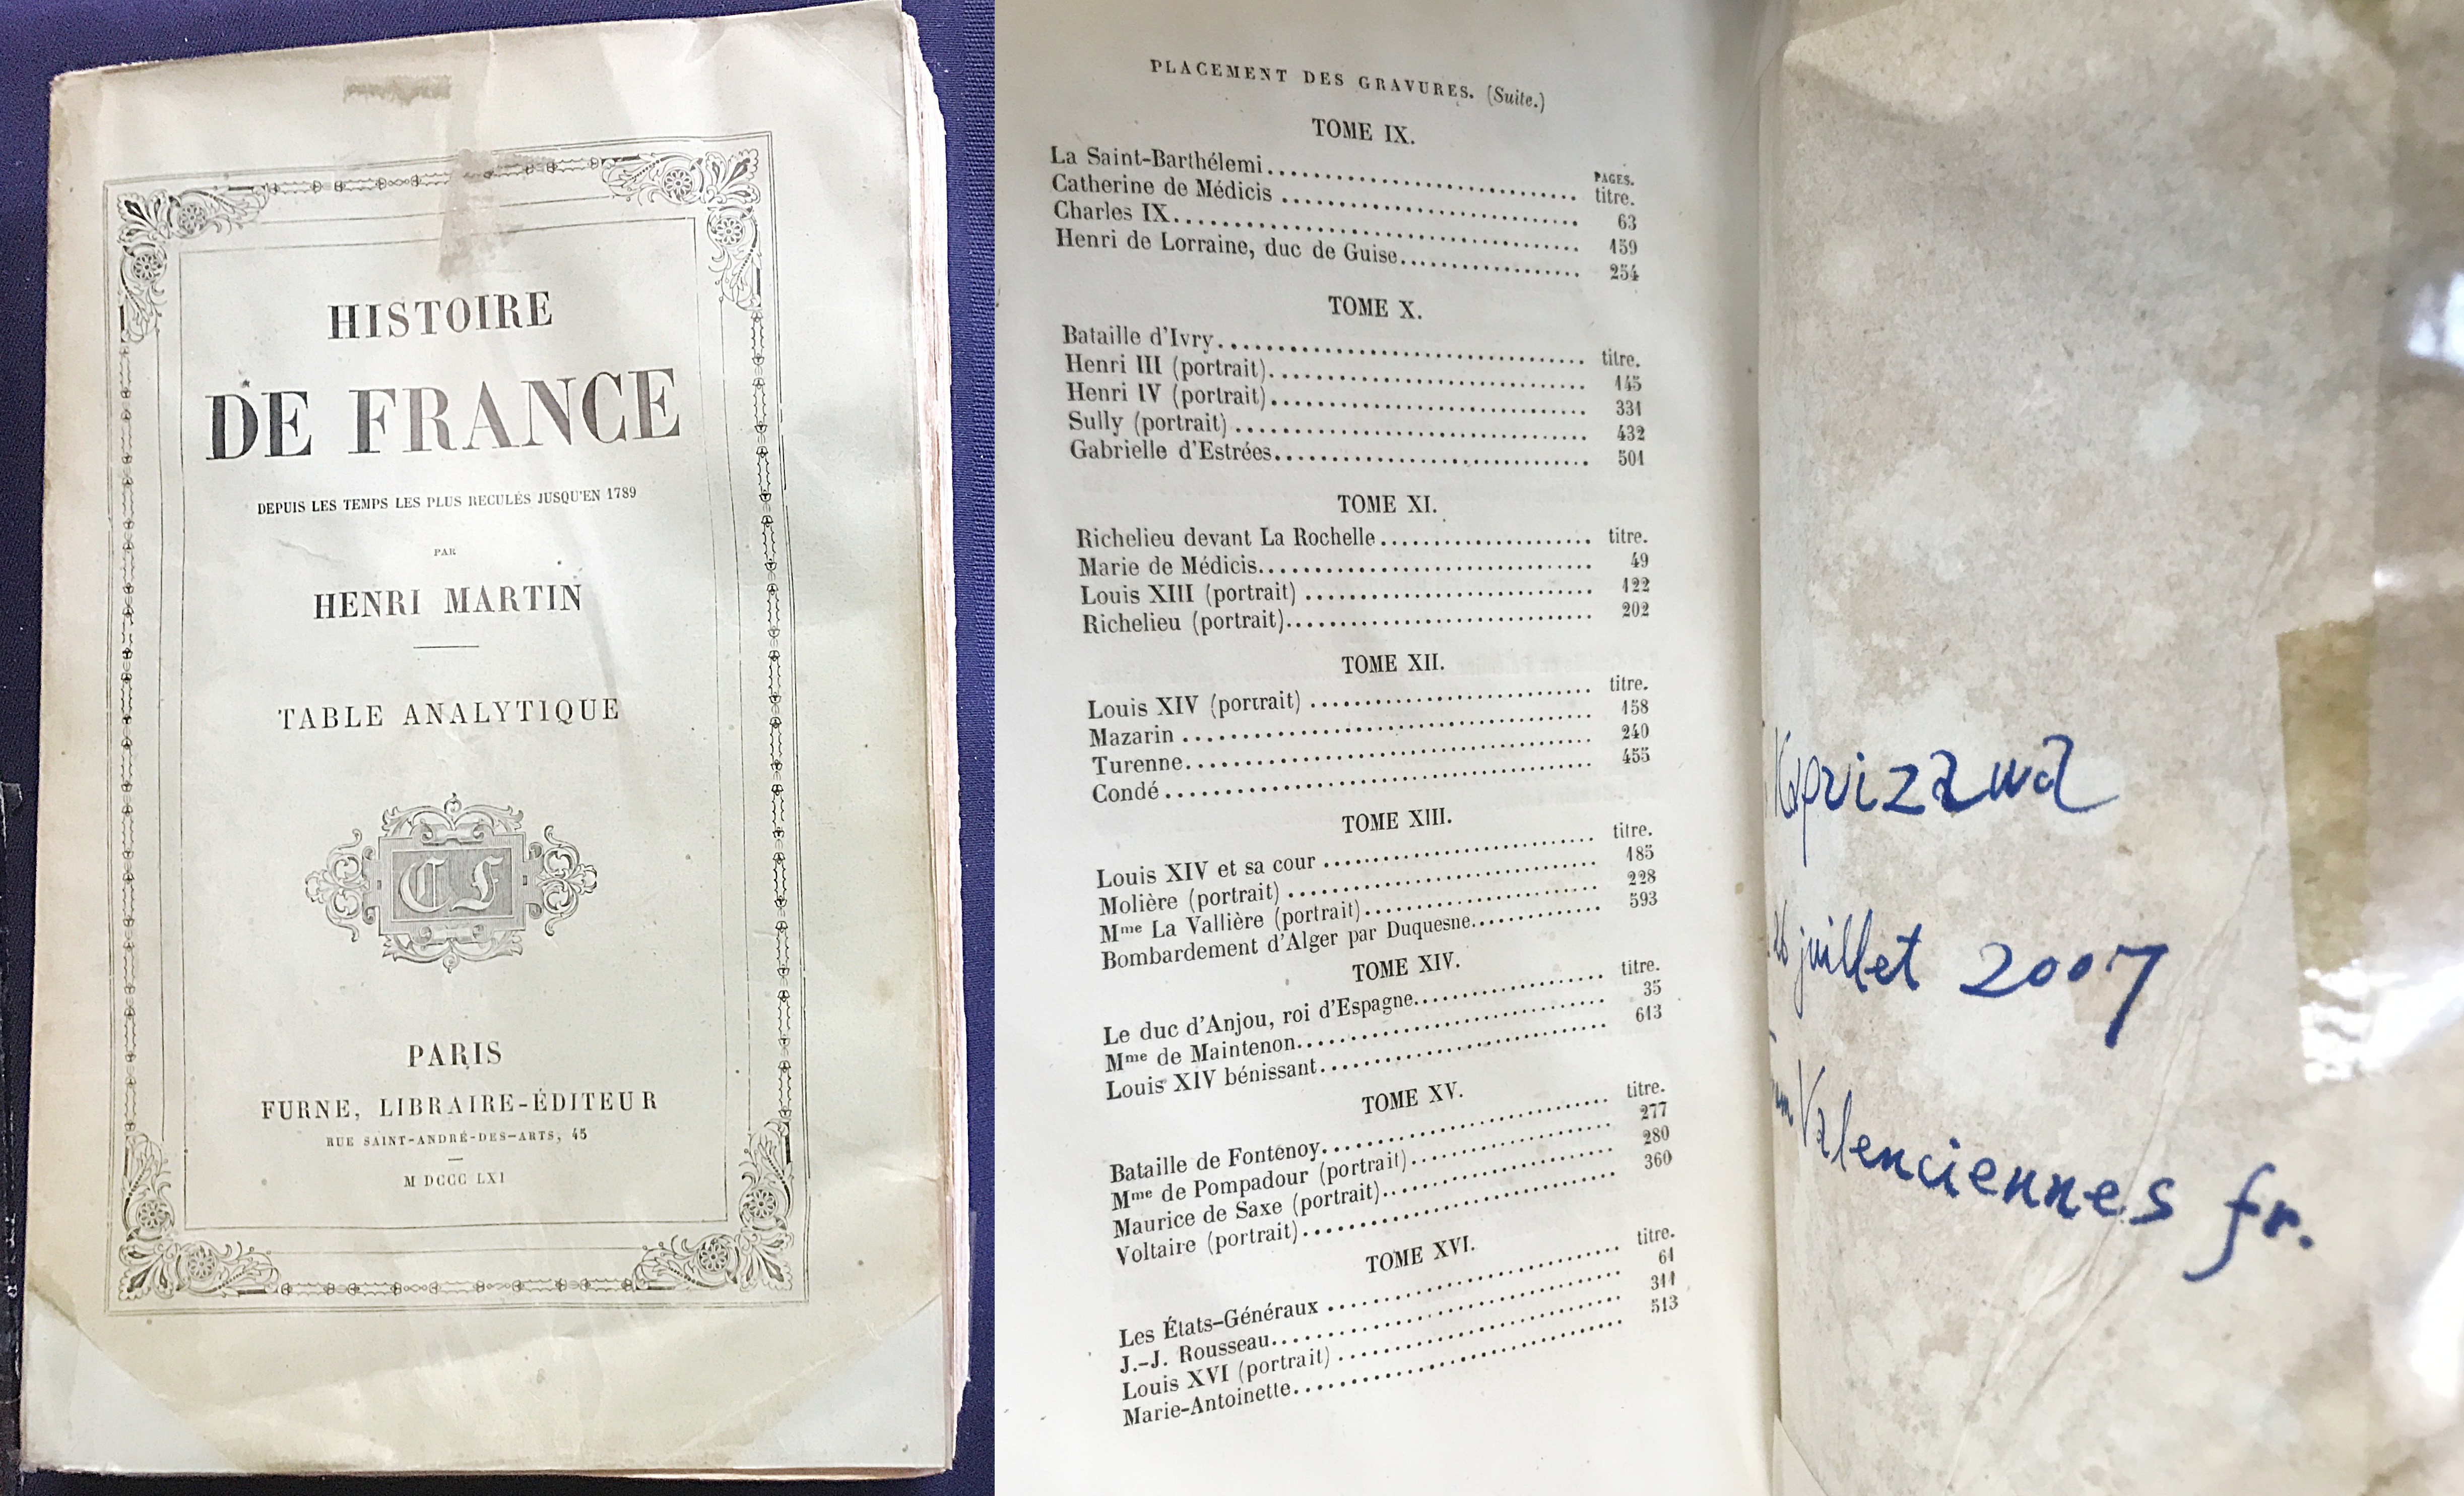 HISTOIRE
DE FRANCE
DEPUIS LES TEMPS LES PLUS RECULÉS JUSQU'EN 1789
PAR
HENRI MARTIN
TABLE ANALYTIQUE
CF
PARIS
FURNE, LIBRAIRE-ÉDITEUR
RUE SAINT-ANDRÉ-DES-ARTS, 45
M DCCC LXI
PLACEMENT DES GRAVURES. (Suite.)
TOME IX.
PAGES.
La Saint-Barthélemi.................... titre.
Catherine de Médicis .................... 63
Charles IX.................... 159
Henri de Lorraine, duc de Guise.................... 254
TOME X.
Bataille d'Ivry.................... titre.
Henri III (portrait).................... 145
Henri IV (portrait).................... 331
Sully (portrait) .................... 432
Gabrielle d'Estrées.................... 501
TOME XI.
Richelieu devant La Rochelle.................... titre.
Marie de Médicis.................... 49
Louis XIII (portrait) .................... 122
Richelieu (portrait).................... 202
TOME XII.
Louis XIV (portrait) .................... titre.
Mazarin .................... 158
Turenne.................... 240
Condé.................... 455
TOME XIII.
Louis XIV et sa cour .................... titre.
Molière (portrait) .................... 185
Mme La Vallière (portrait).................... 228
Bombardement d'Alger par Duquesne.................... 593
TOME XIV.
Le duc d'Anjou, roi d'Espagne.................... titre.
Mme de Maintenon.................... 35
Louis XIV bénissant.................... 613
TOME XV.
Bataille de Fontenoy.................... titre.
Mme de Pompadour (portrait).................... 277
Maurice de Saxe (portrait).................... 280
Voltaire (portrait).................... 360
TOME XVI.
Les États-Généraux .................... titre.
J.-J. Rousseau.................... 61
Louis XVI (portrait) .................... 311
Marie-Antoinette.................... 513
26 juillet 2007
Valenciennes fr.